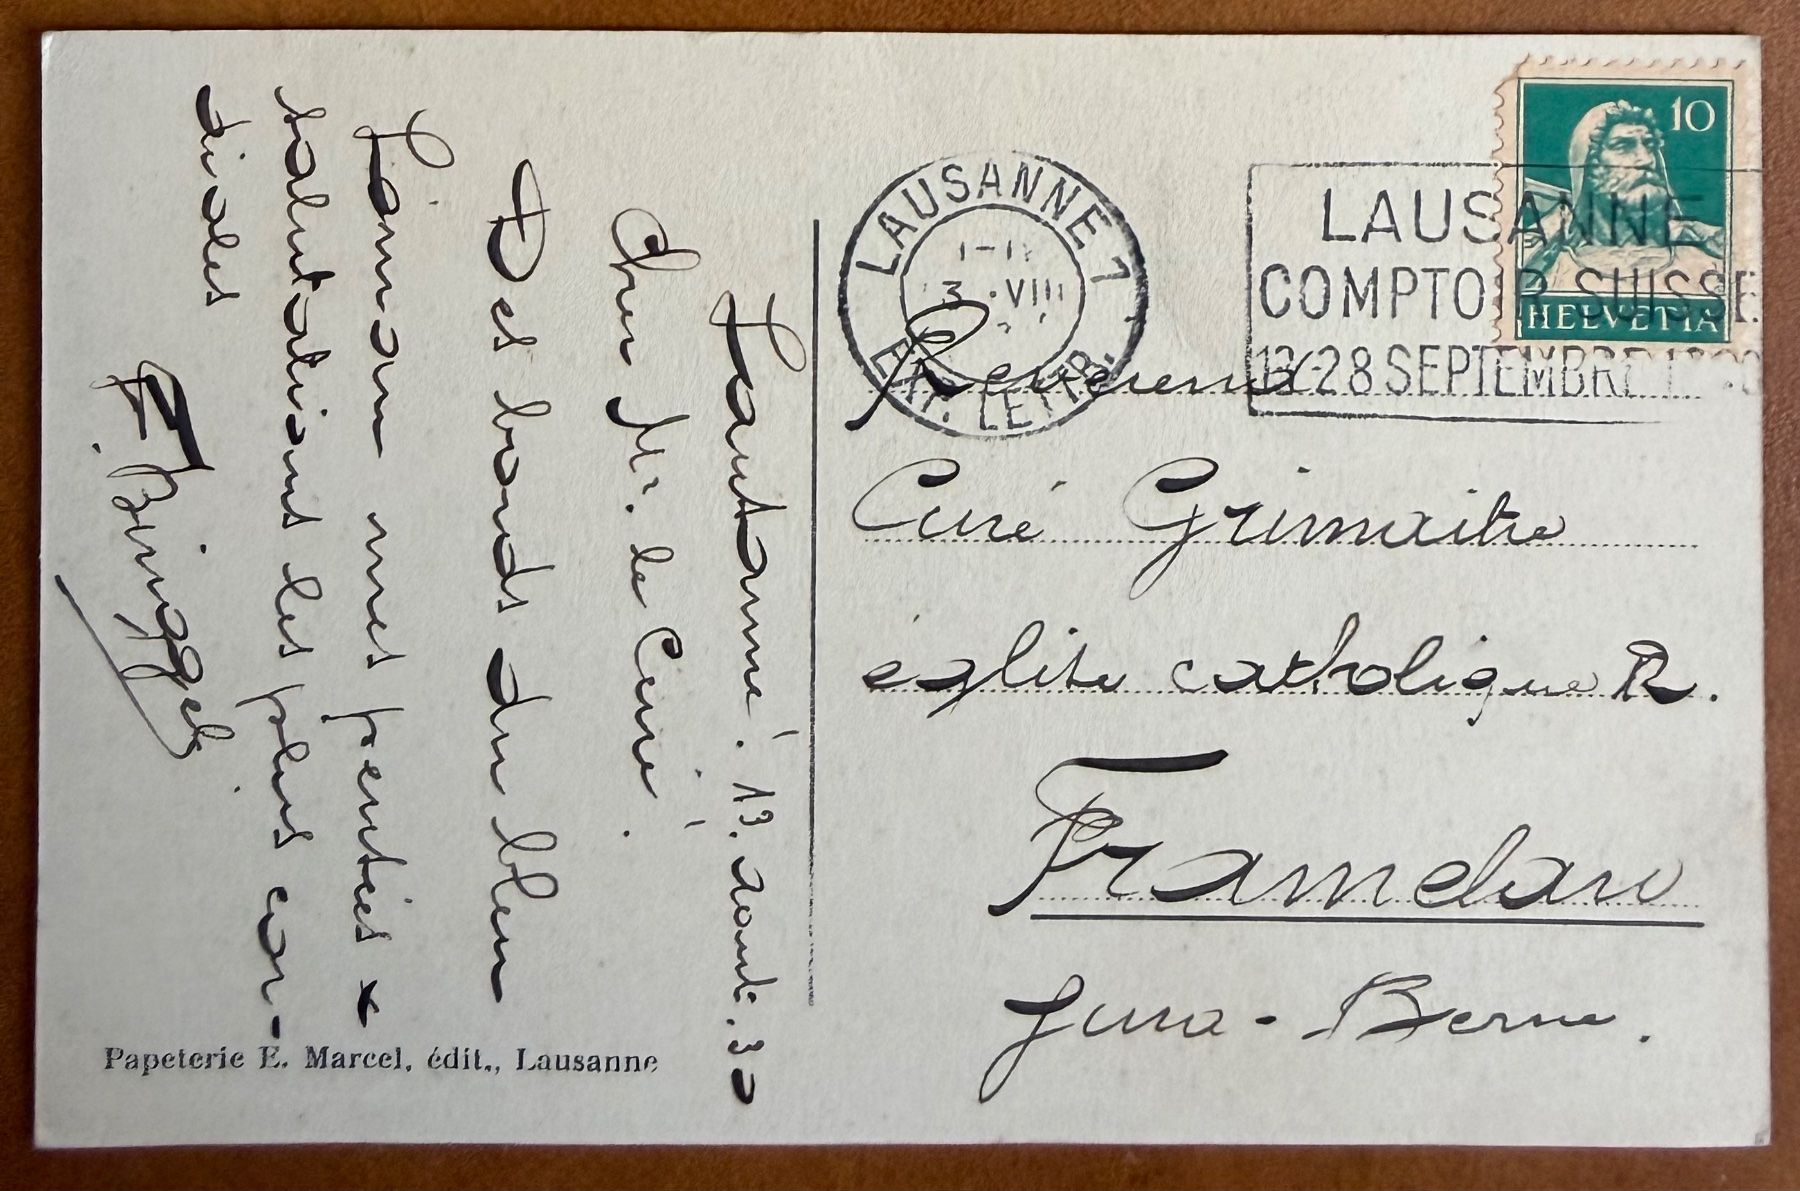 Lausanne. 13. août. 30
Cher Mr. le Curé.
Des bords du bleu
Léman mes pensées &
salutations les plus cor-
diales
Papeterie E. Marcel, édit., Lausanne
LAUSANNE 1
VIII
EXP. LETTR.
LAUSANNE
COMPTOIR SUISSE
13-28 SEPTEMBRE
10
HELVETIA
Révérend
Curé Grimaitre
église catholique R.
Tramelan
Jura-Berne.